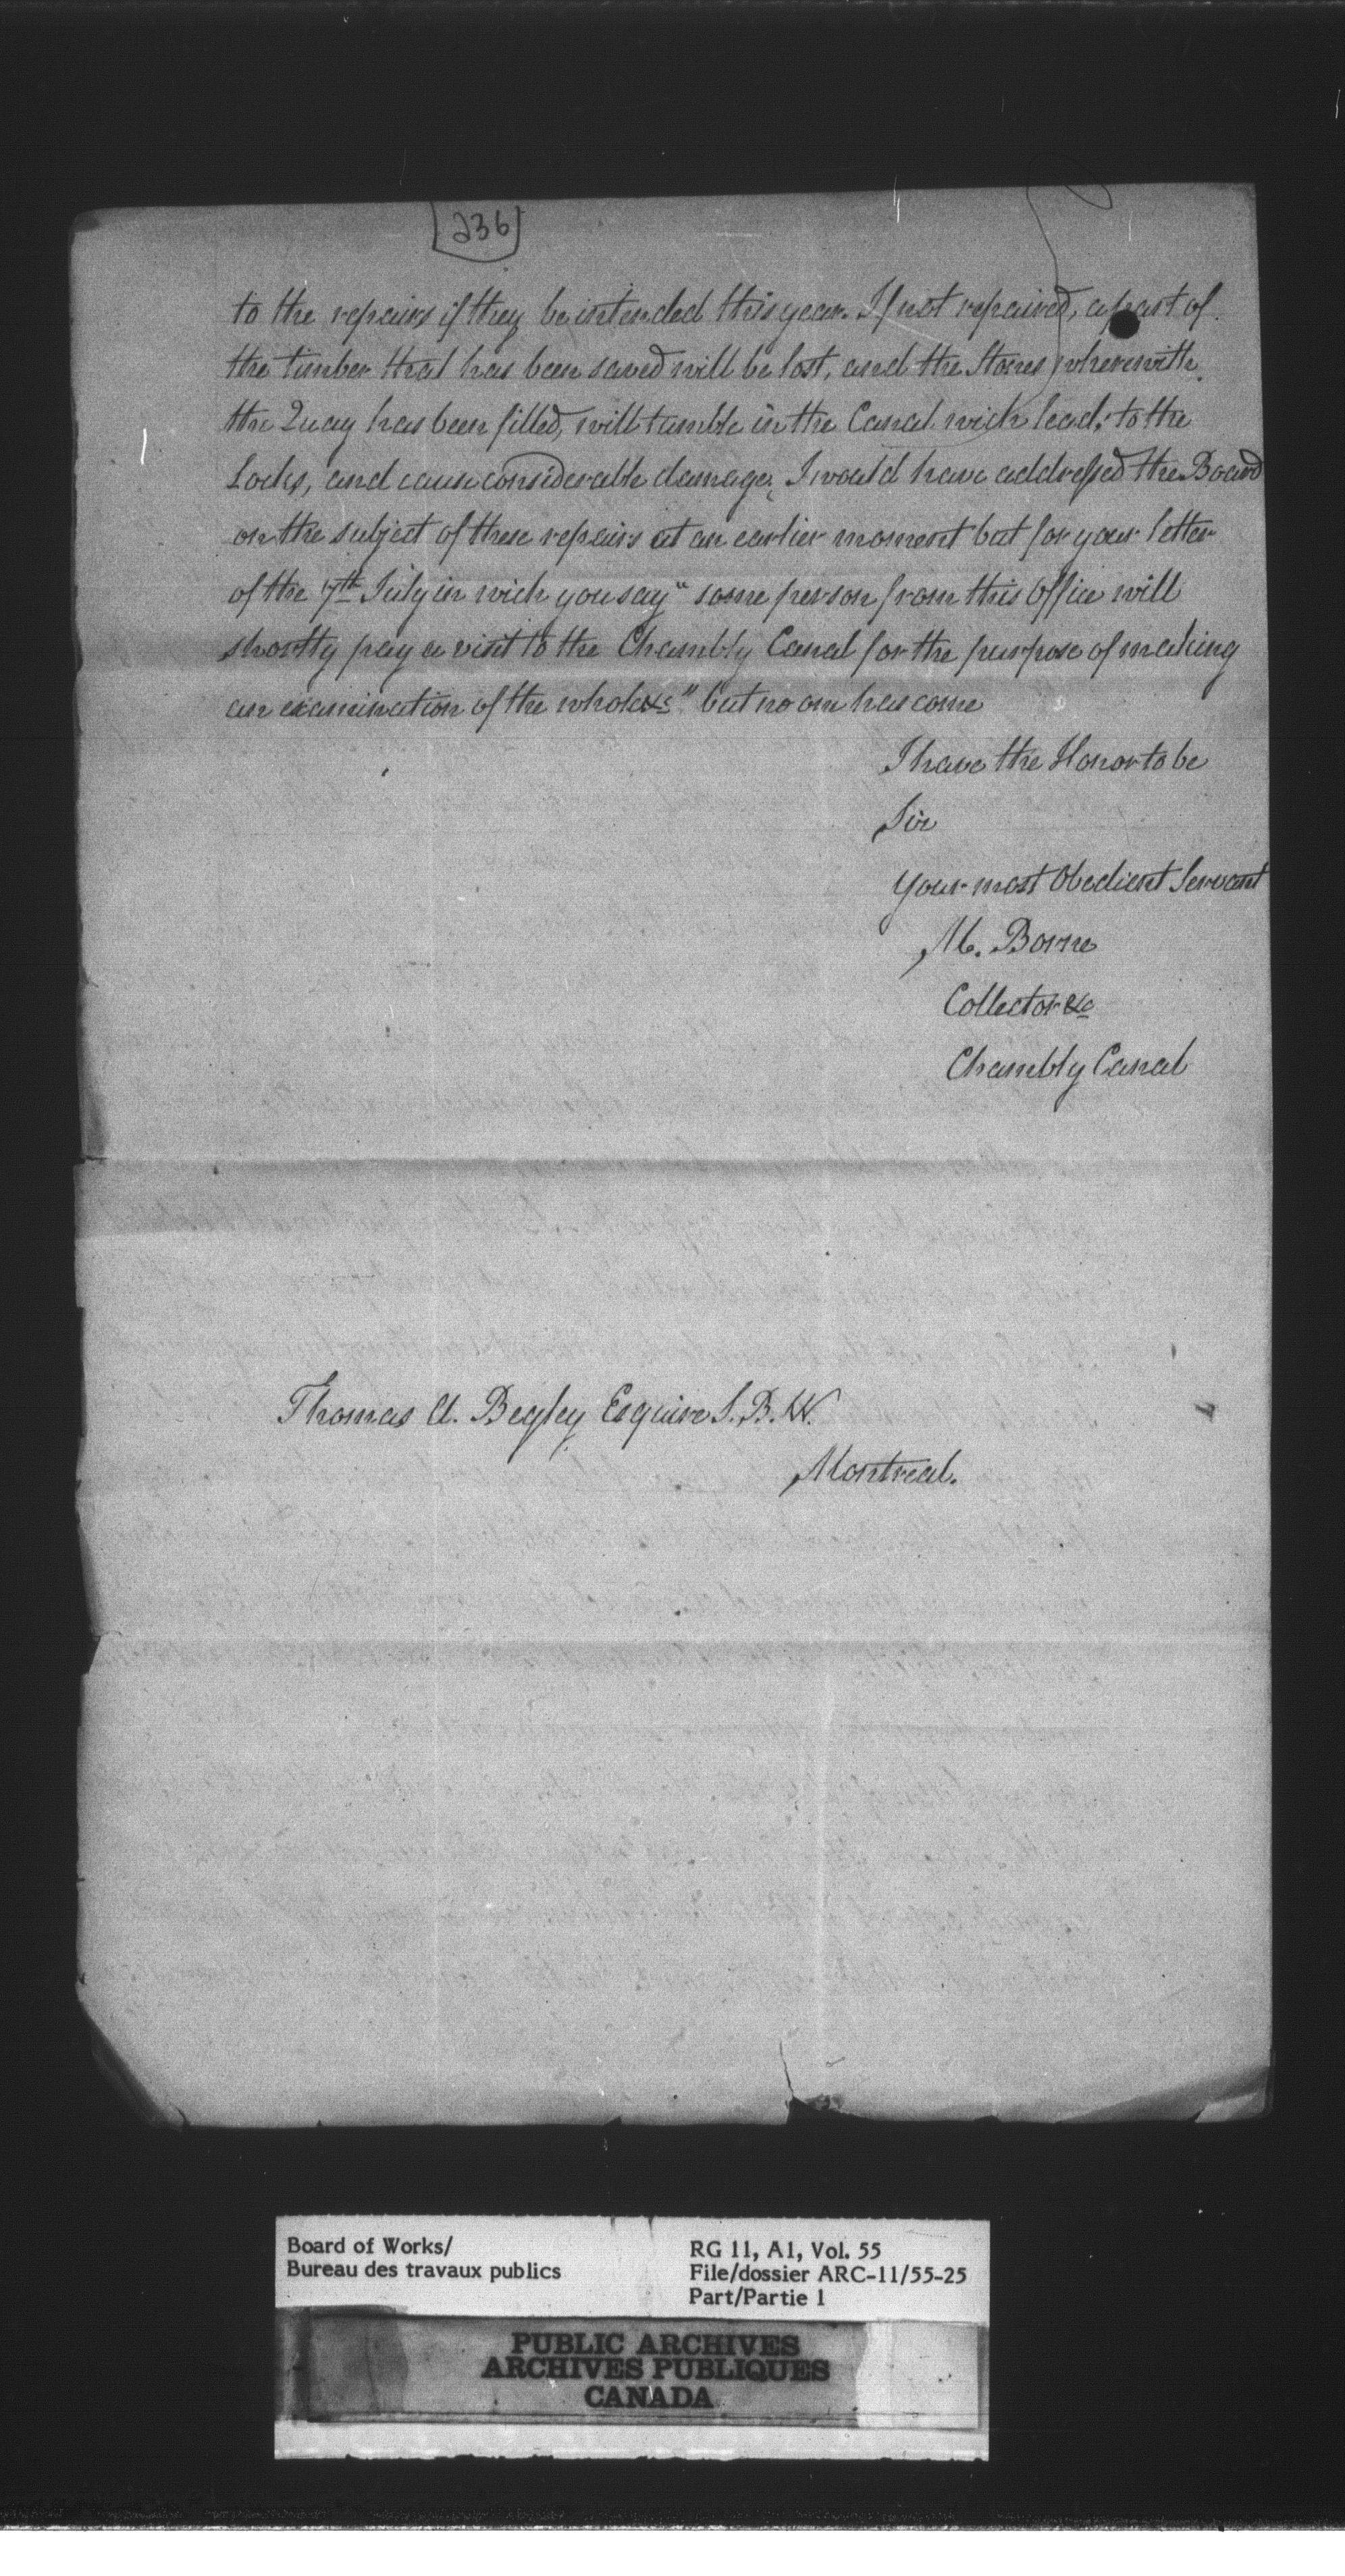 236
to the repairs if they be intended this year. If not repaired, a part of
the timber that has been saved will be lost, and the Stones wherewith
the Quay has been filled, will tumble in the Canal wich leads to the
Locks, and cause considerable damage. I would have addressed the Board
on the subject of these repairs at an earlier moment but for your letter
of the 7th July in wich you say "some person from this Office will
shortly pay a visit to the Chambly Canal for the purpose of making
an examination of the whole &c" but no one has come
I have the Honor to be
Sir
Your most Obedient Servant
M. Borne
Collector &c
Chambly Canal
Thomas A. Begley Esquire S.B.W.
Montreal.
Board of Works/
Bureau des travaux publics
RG 11, A1, Vol. 55
File/dossier ARC-11/55-25
Part/Partie 1
PUBLIC ARCHIVES
ARCHIVES PUBLIQUES
CANADA